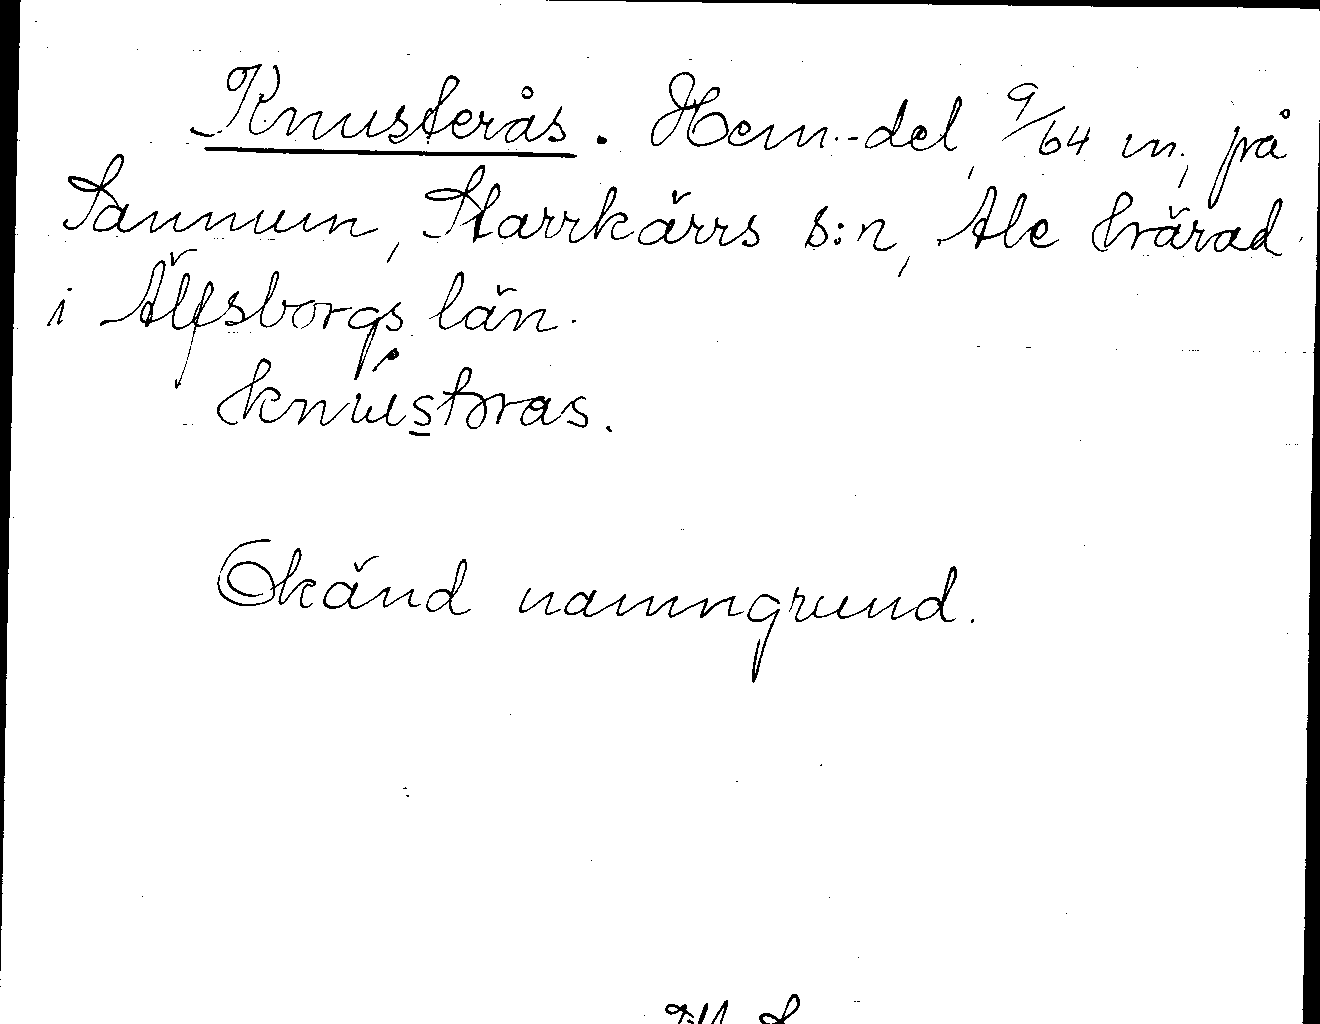 Knusterås. Hem.-del, 9/64 m, på
Sannum, Starrkärrs s:n, Ale härad
i Älfsborgs län.
Okänd namngrund.